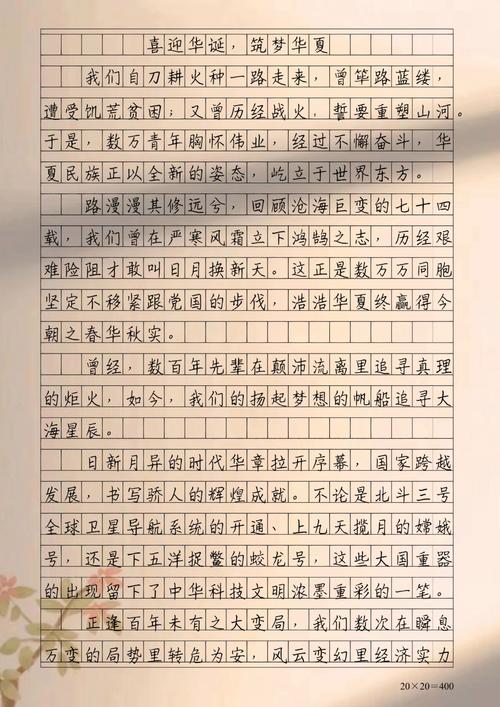 喜迎华诞，筑梦华夏
我们自刀耕火种一路走来，曾筚路蓝缕，
遭受饥荒贫困；又曾历经战火，誓要重塑山河。
于是，数万青年胸怀伟业，经过不懈奋斗，华
夏民族正以全新的姿态，屹立于世界东方。
路漫漫其修远兮，回顾沧海巨变的七十四
载，我们曾在严寒风霜立下鸿鹄之志，历经艰
难险阻才敢叫日月换新天。这正是数万万同胞
坚定不移紧跟党国的步伐，浩浩华夏终赢得今
朝之春华秋实。
曾经，数百年先辈在颠沛流离里追寻真理
的炬火，如今，我们的扬起梦想的帆船追寻大
海星辰。
日新月异的时代华章拉开序幕，国家跨越
发展，书写骄人的辉煌成就。不论是北斗三号
全球卫星导航系统的开通、上九天揽月的嫦娥
号，还是下五洋捉鳖的蛟龙号，这些大国重器
的出现留下了中华科技文明浓墨重彩的一笔。
正逢百年未有之大变局，我们数次在瞬息
万变的局势里转危为安，风云变幻里经济实力
20×20=400